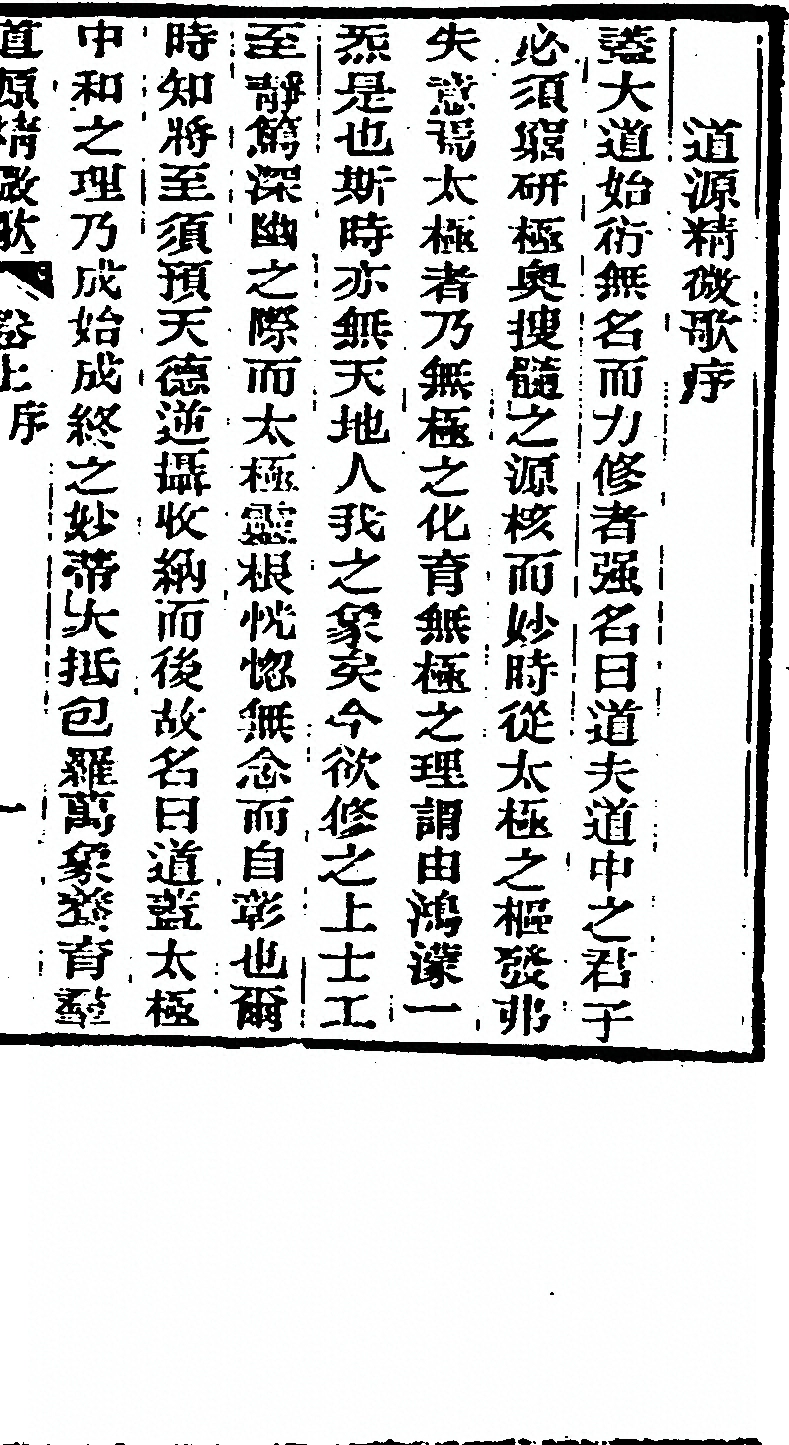 道源精微歌序
蓋大道始衍無名而力修者强名曰道夫道中之君子
必須窮研極奥搜髓之源核而妙時從太極之樞發弗
失意焉太極者乃無極之化育無極之理謂由鴻濛一
炁是也斯時亦無天地人我之象矣今欲修之上士工
至靜篤深幽之際而太極靈根恍惚無念而自彰也爾
時知將至須預天德逆攝收納而後故名曰道蓋太極
中和之理乃成始成終之妙蒂大抵包羅萬象發育羣
道源精微歌 卷上序 一